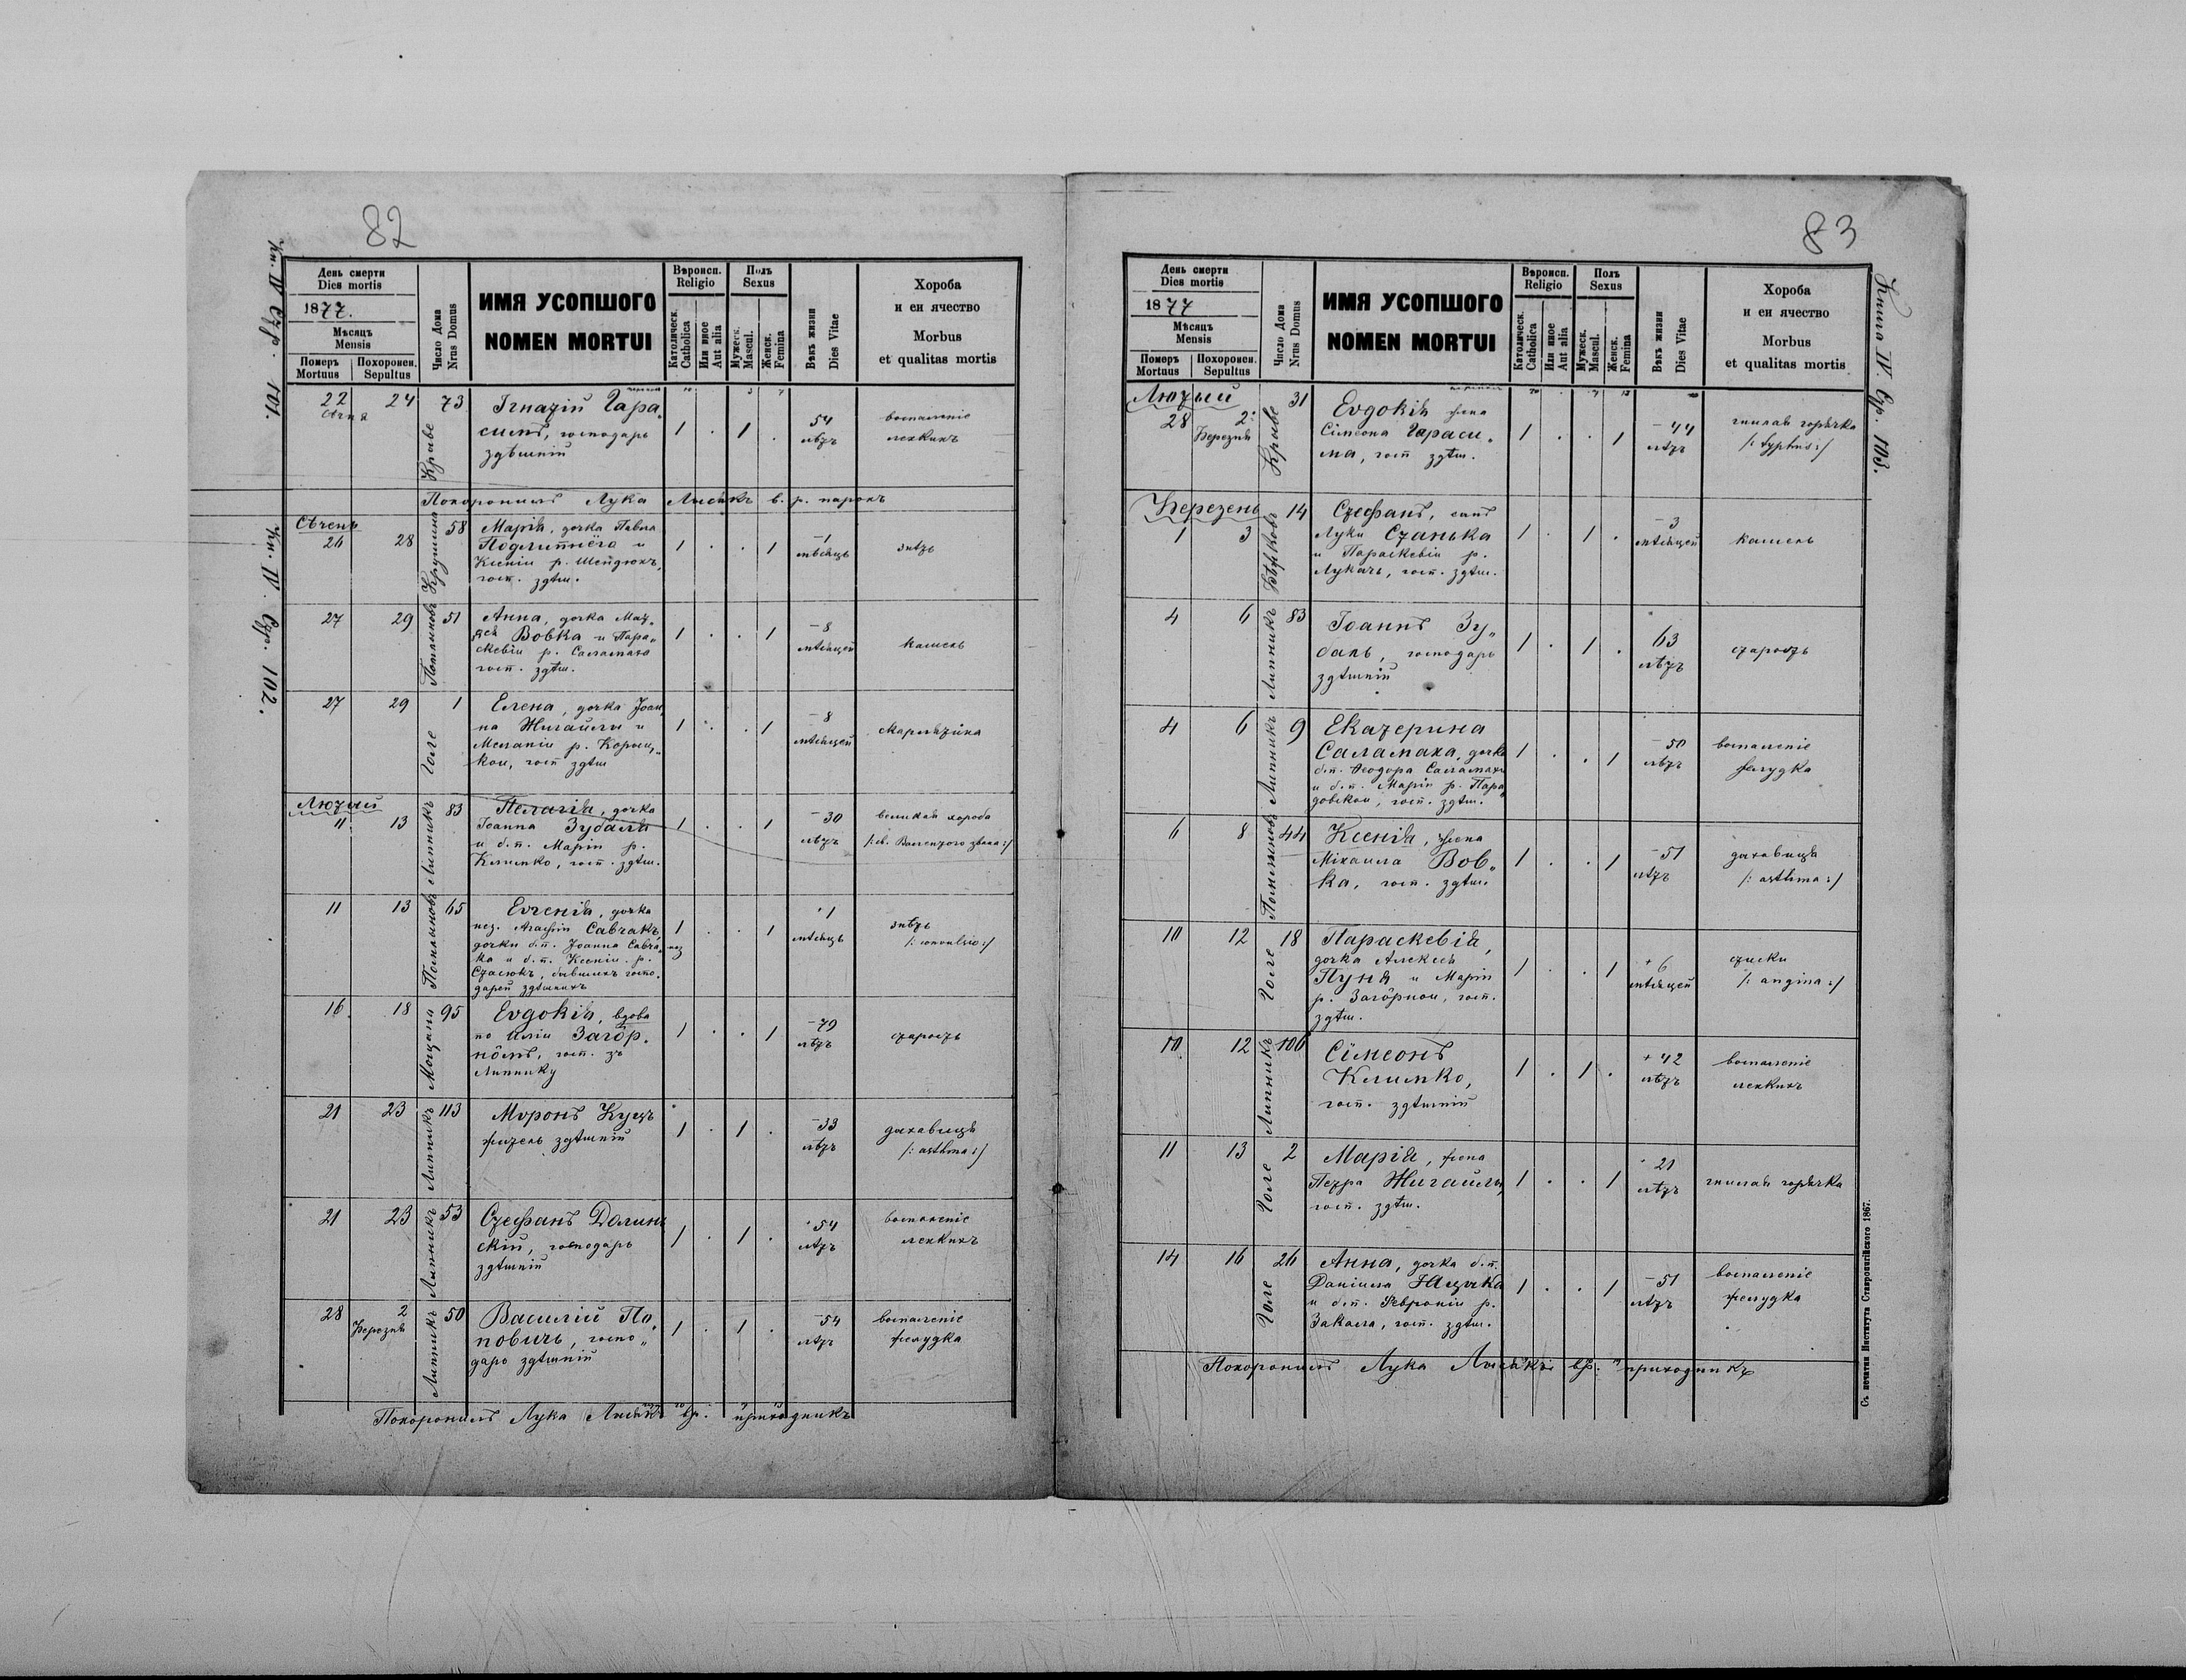 82
Кн. IV Стр. 101.
Кн. IV. Стр. 102.
День смерти
Dies mortis
1877.
Мѣсяцъ
Mensis
Померъ
Mortuus
Похоронен.
Sepultus
Число Дома
Nrus Domus
ИМЯ УСОПШОГО
NOMEN MORTUI
Вѣроисп.
Religio
Католическ.
Catholica
Или иное
Aut alia
Полъ
Sexus
Мужеск.
Mascul.
Женск.
Femina
Вѣкъ жизни
Dies Vitae
Хороба
и еи ячество
Morbus
et qualitas mortis
22 24 73
Крыве
Ігнатій Гара„
симъ, господарь
здѣшній
1 . 1 .
54
лѣтъ
воспаленіе
легкихъ
Похоронилъ Лука в. р. парохъ
Сѣчень
26 28 58
Крушина
Марія, дочка Павла
и
Ксеніи р. Шейдюкъ,
госп. здѣш.
1 . . 1
1
мѣсяць
знѣтъ
27 29 51
Анна, дочка Мат„
ѳея Вовка и Пара„
скевіи р. Саламаха
госп. здѣш.
1 . . 1
8
мѣсяцей
кашель
27 29 1
Голе
Елена, дочка Іоан„
на Жигайлы и
Меланіи р. Корыц„
кои, госп здѣш
1 . . 1
8
мѣсяцей
Лютый
11 13 83
Липникъ
Пелагія, дочка
Іоанна Зубаля
и б.п. Маріи р.
Климко, госп. здѣш.
1 . . 1
30
лѣтъ
великая хороба
/: св. Валентого звана :/
11 13 65
Евгенія, дочка
нез. Агафіи Савчакъ,
дочки б.п. Іоанна Савча„
ка и б.п. Ксеніи р.
Стасюкъ, бывшихъ госпо„
дарей здѣшнихъ
1 нез . . 1
1
мѣсяць
знѣтъ
/: convulsio :/
16 18 95
Мощана
Евдокія, вдова
по Иліи Загôр„
нôмъ, госп. зъ
Липнику
1 . . 1
79
лѣтъ
старость
21 23 113
Липникъ
Мѵронъ Куцъ
житель здѣшній
1 . 1 .
33
лѣтъ
дыхавиця
/: asthma :/
21 23 53
Липникъ
Стефанъ Долин
скій, господарь
здѣшній
1 . 1 .
54
лѣтъ
воспаленіе
легкихъ
28 2
Березня
50
Липникъ
Василій По„
повичь, госпо„
дарь здѣшній
1 . 1 .
54
лѣтъ
воспаленіе
желудка
Похоронилъ Лука вр. приходникъ
83
Книга IV. Стр. 103.
День смерти
Dies mortis
1877
Мѣсяцъ
Mensis
Померъ
Mortuus
Похоронен.
Sepultus
Число Дома
Nrus Domus
ИМЯ УСОПШОГО
NOMEN MORTUI
Вѣроисп.
Religio
Католическ.
Catholica
Или иное
Aut alia
Полъ
Sexus
Мужеск.
Mascul.
Женск.
Femina
Вѣкъ жизни
Dies Vitae
Хороба
и еи ячество
Morbus
et qualitas mortis
Лютый
28 2
Березня
31
Крыве
Евдокія жена
Сімеона Гараси„
ма, госп здѣш.
1 . . 1
44
лѣтъ
гнилая горячка
/: typhus :/
Березень
1 3 14
Стефанъ, сынъ
Луки Станька
и Параскевіи р.
Лукачь, госп. здѣш.
1 . 1 .
3
мѣсяцей
кашель
4 6 83
Липникъ
Іоаннъ Зу„
баль, господарь
здѣшній
1 . 1 .
63
лѣтъ
старость
4 6 9
Липникъ
Екатерина
Саламаха, дочка
б.п. Ѳеодора Саламахи
и б.п. Маріи р.
госп. здѣш.
1 . . 1
50
лѣтъ
воспаленіе
желудка
6 8 44
Ксенія, жена
Міхаила Вов„
ка, госп. здѣш.
1 . . 1
51
лѣтъ
дыхавиця
/: asthma :/
10 12 18
Голе
Параскевія,
дочка Алексѣя
Пуня и Маріи
р. Загôрнои, госп.
здѣш.
1 . . 1
6
мѣсяцей
/: angina :/
10 12 106
Липникъ
Сімеонъ
Климко,
госп. здѣшній
1 . 1 .
42
лѣтъ
воспаленіе
легкихъ
11 13 2
Голе
Марія, жена
Петра Жигайлы,
госп. здѣш.
1 . . 1
21
лѣтъ
гнилая горячка
14 16 26
Голе
Анна, дочка б.п.
Даніила
и б.п. Февроніи р.
госп. здѣш.
1 . . 1
51
лѣтъ
воспаленіе
желудка
Похоронилъ Лука вр. приходникъ
Съ печатни Института Ставропигійского 1867.